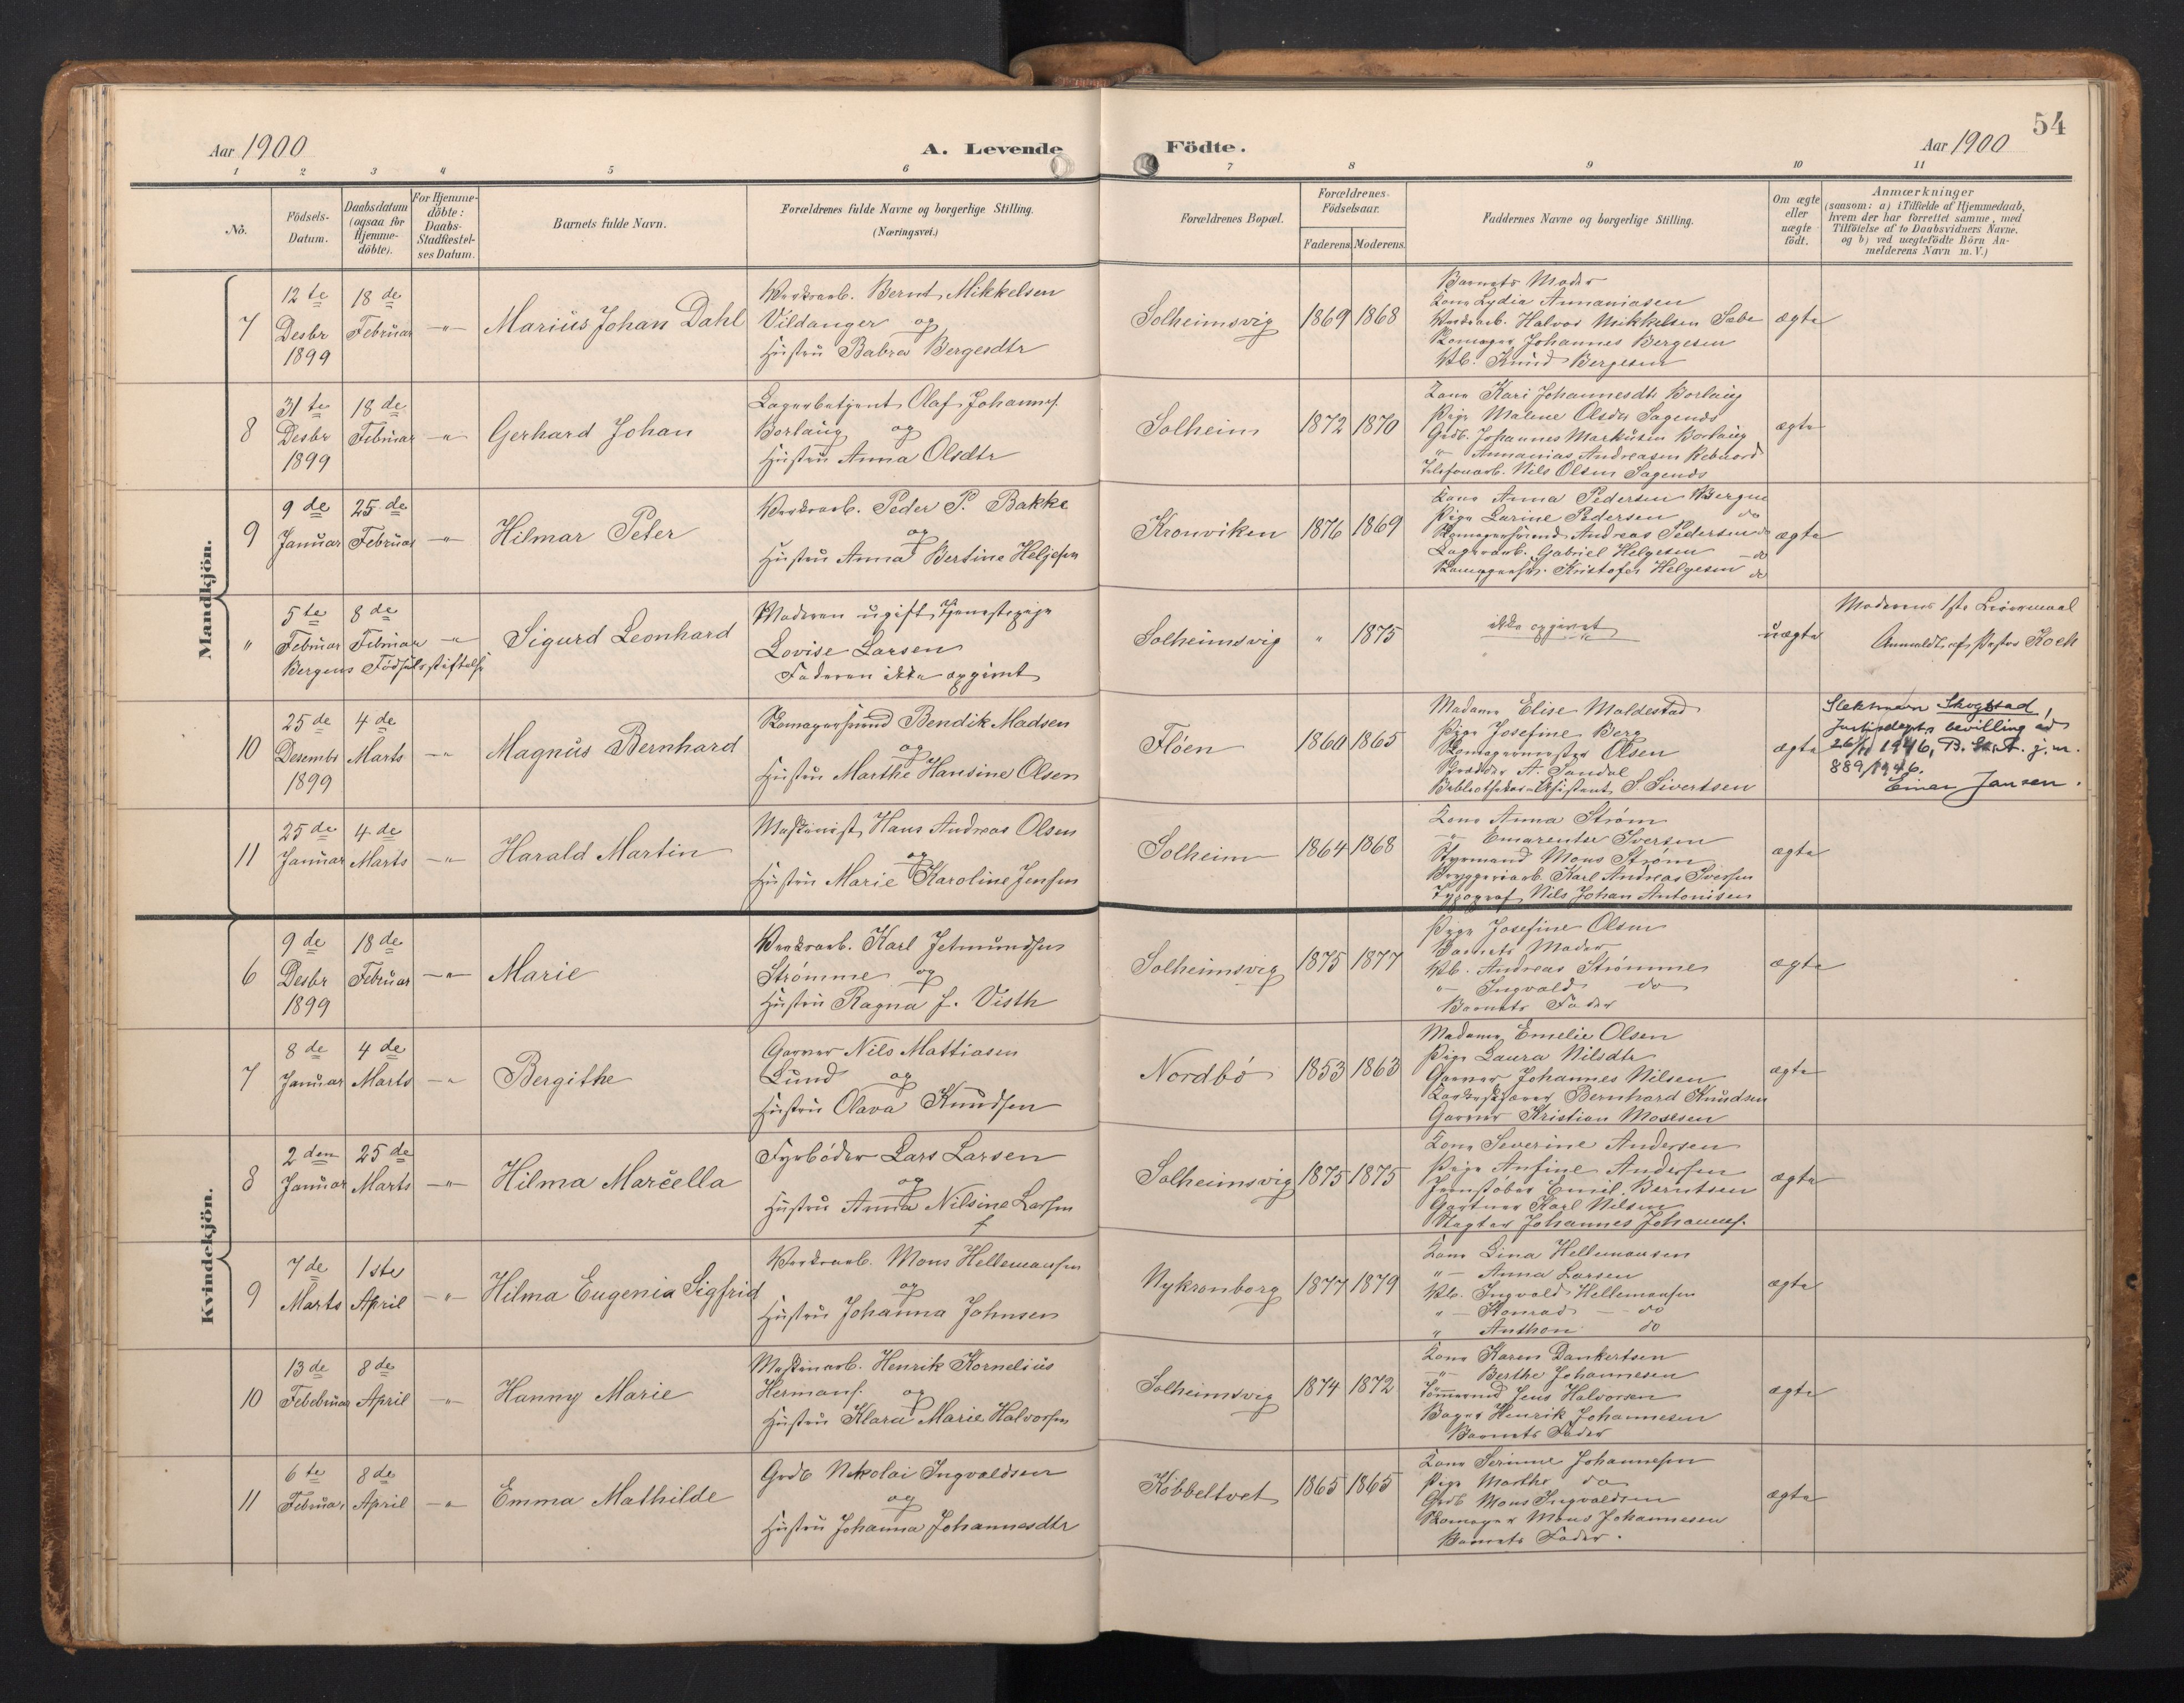 54
Aar 1900
A. Levende Födte.
Aar 1900
1 2 3 4 5 6 7 8 9 10 11
Nö.
Födsels-Datum.
Daabsdatum (ogsaa for Hjemme-döbte).
For Hjemme-döbte: Daabs-Stadfæstel-ses Datum.
Barnets fulde Navn.
Forældrenes fulde Navne og borgerlige Stilling.
(Næringsvei.)
Forældrenes Bopæl.
Forældrenes Födselsaar.
Faderens. Moderens.
Faddernes Navne og borgerlige Stilling.
Om ægte eller uægte födt.
Anmærkninger
(saasom: a) i Tilfælde af Hjemmedaab, hvem der har forrettet samme, med Tilföielse af to Daabsvidners Navne, og b) ved uægtefödte Börn An-melderens Navn m.V.)
Mandkjön.
7
12te Desbr 1899
18de Februar
—"—
Marius Johan Dahl
Verksarb. Bernt Mikkelsen
Vildanger og
Hustru Babra Bergesdtr
Solheimsvig
1869 1868
Barnets Moder
Kone Lydia Annaniasen
Verksarb. Halvor Mikkelsen Sæbe
Skomager Johannes Bergesen
Vb. Knud Bergesen
ægte
8
31te Desbr 1899
18de Februar
—"—
Gerhard Johan
Lagerbetjent Olaf Johannes.
Borlaug og
Hustru Anna Olsdtr
Solheim
1872 1870
Kone Kari Johannesdtr Borlaug
Pige Malene Olsdtr Sagends
Grdb. Johannes Markusen Borlaug
"— Annanias Andreasen
Telefonarb. Nils Olsen Sagends
ægte
9
9de Januar
25de Februar
—"—
Hilmar Peter
Verksarb. Peder P. Bakke
og
Hustru Anna Bertine Helgesen
Kronviken
1876 1869
Kone Anna Pedersen Bergen
Pige Larine Pedersen do
Skomagersvend Andreas Pedersen do
Lagerarb. Gabriel Helgesen — do
Kristofer Helgesen do
ægte
"
5te Februar
8de Februar
—"—
Bergens Fødselsstiftelse
Sigurd Leonhard
Moderen ugift Tjenestepige
Lovise Larsen
Faderen ikke opgivet
Solheimsvig
" 1875
ikke opgivet
uægte
Moderens 1ste Leiermaal
Anmeldt af Pastor Koch
10
25de Desembr 1899
4de Marts
—"—
Magnus Bernhard
Skomagersvend Bendik Madsen
og
Hustru Marthe Hansine Olsen
Flöen
1860 1865
Madame Elise Moldestad
Pige Josefine Berg
Skomagermester Olsen
Skrædder A. Sandal
Bibliotheks-Assistent S. Sivertsen
ægte
Slektnavn Skogstad,
Justisdepts bevilling ad
26/11 1946, B. St. A. j.nr.
889/1946.
Einar Jansen.
11
25de Januar
4de Marts
—"—
Harald Martin
Maskinist Hans Andreas Olsen
og
Hustru Marie Karoline Jensen
Solheim
1864 1868
Kone Anna Strøm
—"— Emarentse Iversen
Styrmand Mons Strøm
Bryggeriarb. Karl Andreas Iversen
Typograf Nils Johan Antonisen
ægte
Kvindekjön.
6
9de Desbr 1899
18de Februar
—"—
Marie
Verksarb. Karl Jetmundsen
Strömme og
Hustru Ragna f. Visth
Solheimsvig
1875 1877
Pige Josefine Olsen
Barnets Moder
Vb. Andreas Strömme
"— Ingvald do
Barnets Fader
ægte
7
8de Januar
4de Marts
—"—
Bergithe
Garver Nils Mattiasen
Lund og
Hustru Olava Knudsen
Nordbö
1853 1863
Madame Emelie Olsen
Pige Laura Nilsdtr
Garver Johannes Nilsen
Bernhard Knudsen
Garver Kristian Mosesen
ægte
8
2den Januar
25de Marts
—"—
Hilma Marcella
Fyrböder Lars Larsen
og
Hustru Anna Nilsine Larsen
Solheimsvig
1875 1875
Kone Severine Andersen
Pige Anfine Andersen
Jernstöber Emil Berntsen
Gartner Karl Nilsen
Slagter Johannes Johannes.
ægte
9
7de Marts
1ste April
—"—
Hilma Eugenia Sigfrid
Verksarb. Mons Hellemansen
og
Hustru Johanna Johnsen
Nykronborg
1877 1879
Kone Gina Hellemansen
"— Anna Larsen
Vb. Ingvald Hellemansen
"— Konrad — do
" Anthon do
ægte
10
13de Februar
8de April
—"—
Hanny Marie
Maskinarb. Henrik Kornelius
Hermans. og
Hustru Klara Marie Halvorsen
Solheimsvig
1874 1872
Kone Karen Dankertsen
—"— Berthe Johannesen
Tömmermd Jens Halvorsen
Bager Henrik Johannesen
Barnets Fader
ægte
11
6te Februar
8de April
—"—
Emma Mathilde
Grdb Nikolai Ingvaldsen
og
Hustru Johanna Johannesdtr
Köbbeltvet
1865 1865
Kone Serine Johannesen
Pige Marthe do
Grdb Mons Ingvaldsen
Skomager Mons Johannesen
Barnets Fader.
ægte